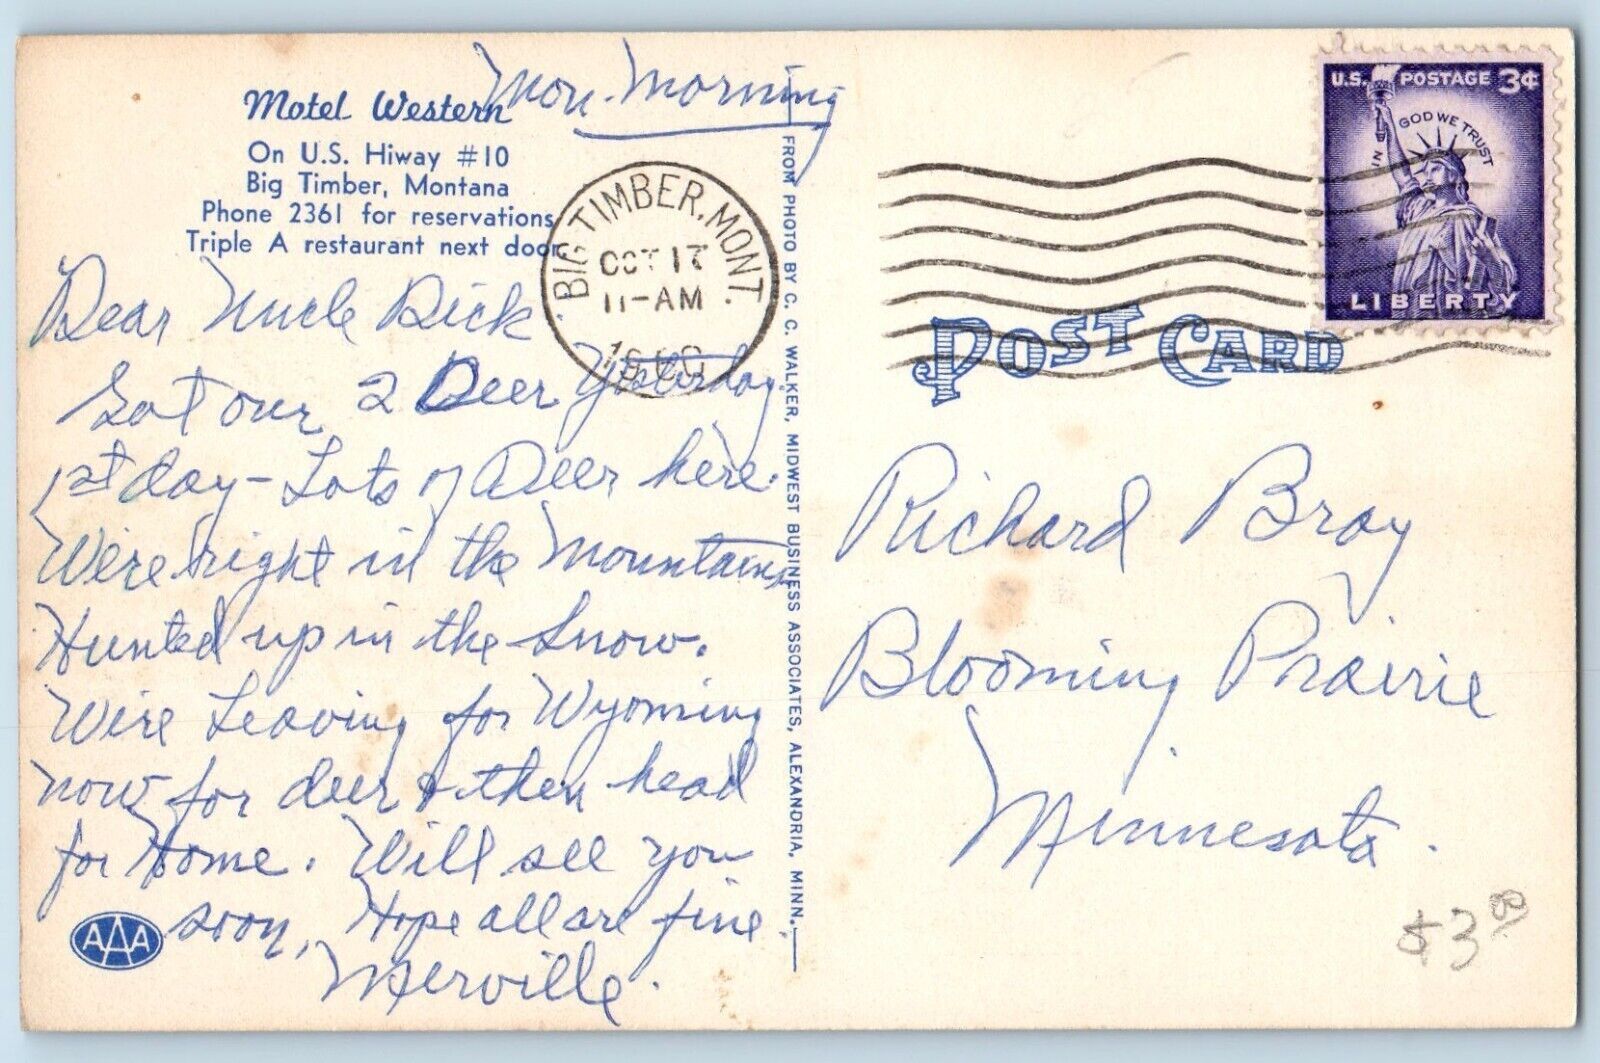 Mon. Morning
Motel Western
On U.S. Hiway #10
Big Timber, Montana
Phone 2361 for reservations
Triple A restaurant next door
BIG TIMBER, MONT.
OCT 17
11-AM
Dear Uncle Dick.
Got our 2 Deer Yesterday
1st day - Lots of Deer here.
We're right in the Mountains
Hunted up in the Snow.
We're Leaving for Wyoming
now for deer & then head
for Home. Will see you
soon, Hope all are fine.
Merville.
AAA
FROM PHOTO BY C. C. WALKER, MIDWEST BUSINESS ASSOCIATES, ALEXANDRIA, MINN.
U.S. POSTAGE 3¢
IN GOD WE TRUST
LIBERTY
POST CARD
Richard Bray
Blooming Prairie
Minnesota.
$3.00